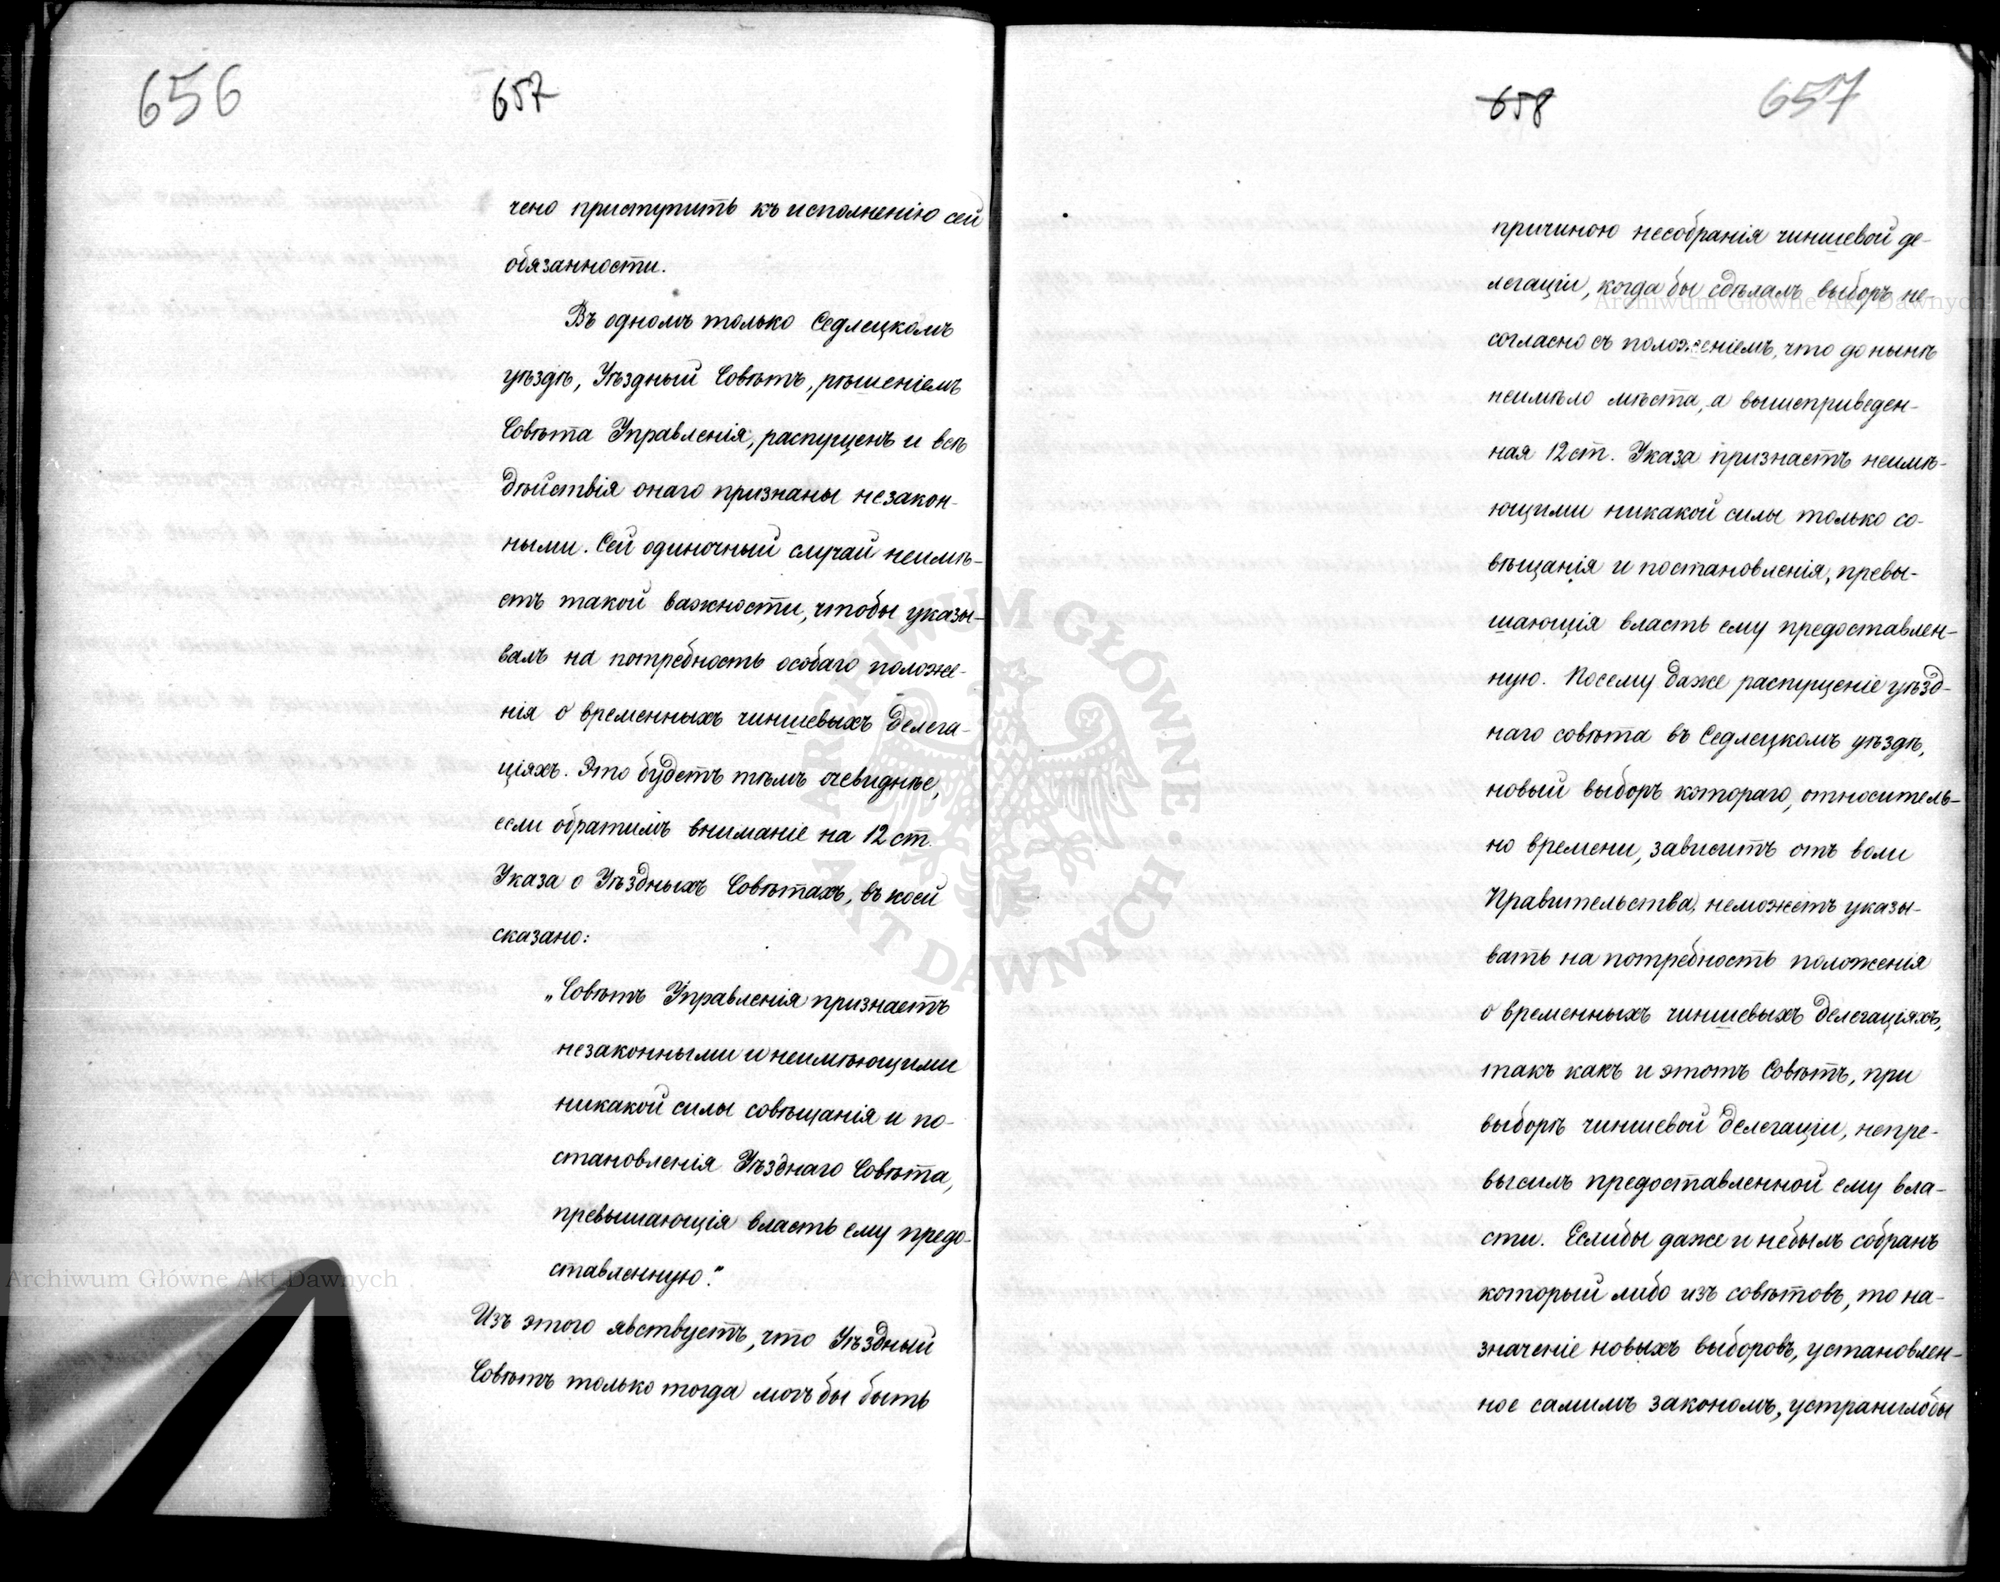 656
657
чено приступить къ исполненію сей
обязанности.
Въ одномъ только Седлецкомъ
уѣздѣ, Уѣздный Совѣтъ, рѣшеніемъ
Совѣта Управленія, распущенъ и всѣ
дѣйствія онаго признаны незакон-
ными. Сей одиночный случай неимѣ-
етъ такой важности, чтобы указы-
валъ на потребность особаго положе-
нія о временныхъ чиншевыхъ делега-
ціяхъ. Это будетъ тѣмъ очевиднѣе,
если обратимъ вниманіе на 12 ст.
Указа о Уѣздныхъ Совѣтахъ, въ коей
сказано:
„Совѣтъ Управленія признаетъ
незаконными и неимѣющими
никакой силы совѣщанія и по-
становленія Уѣзднаго Совѣта,
превышающія власть ему предо-
ставленную."
Изъ этого явствуетъ, что Уѣздный
Совѣтъ только тогда могъ бы быть
658
657
причиною несобранія чиншевой де-
легаціи, когда бы сдѣлалъ выборъ не-
согласно съ положеніемъ, что до нынѣ
неимѣло мѣста, а вышеприведен-
ная 12 ст. Указа признаетъ неимѣ-
ющими никакой силы только со-
вѣщанія и постановленія, превы-
шающія власть ему предоставлен-
ную. Посему даже распущеніе уѣзд-
наго совѣта въ Седлецкомъ уѣздѣ,
новый выборъ котораго, относитель-
но времени, зависитъ отъ воли
Правительства, неможетъ указы-
вать на потребность положенія
о временныхъ чиншевыхъ делегаціяхъ,
такъ какъ и этотъ Совѣтъ, при
выборѣ чиншевой делегаціи, непре-
высилъ предоставленной ему вла-
сти. Еслибы даже и небылъ собранъ
который либо изъ совѣтовъ, то на-
значеніе новыхъ выборовъ, установлен-
ное самимъ закономъ, устранилобы
Archiwum Główne Akt Dawnych
Archiwum Główne Akt Dawnych
ARCHIWUM GŁÓWNE AKT DAWNYCH